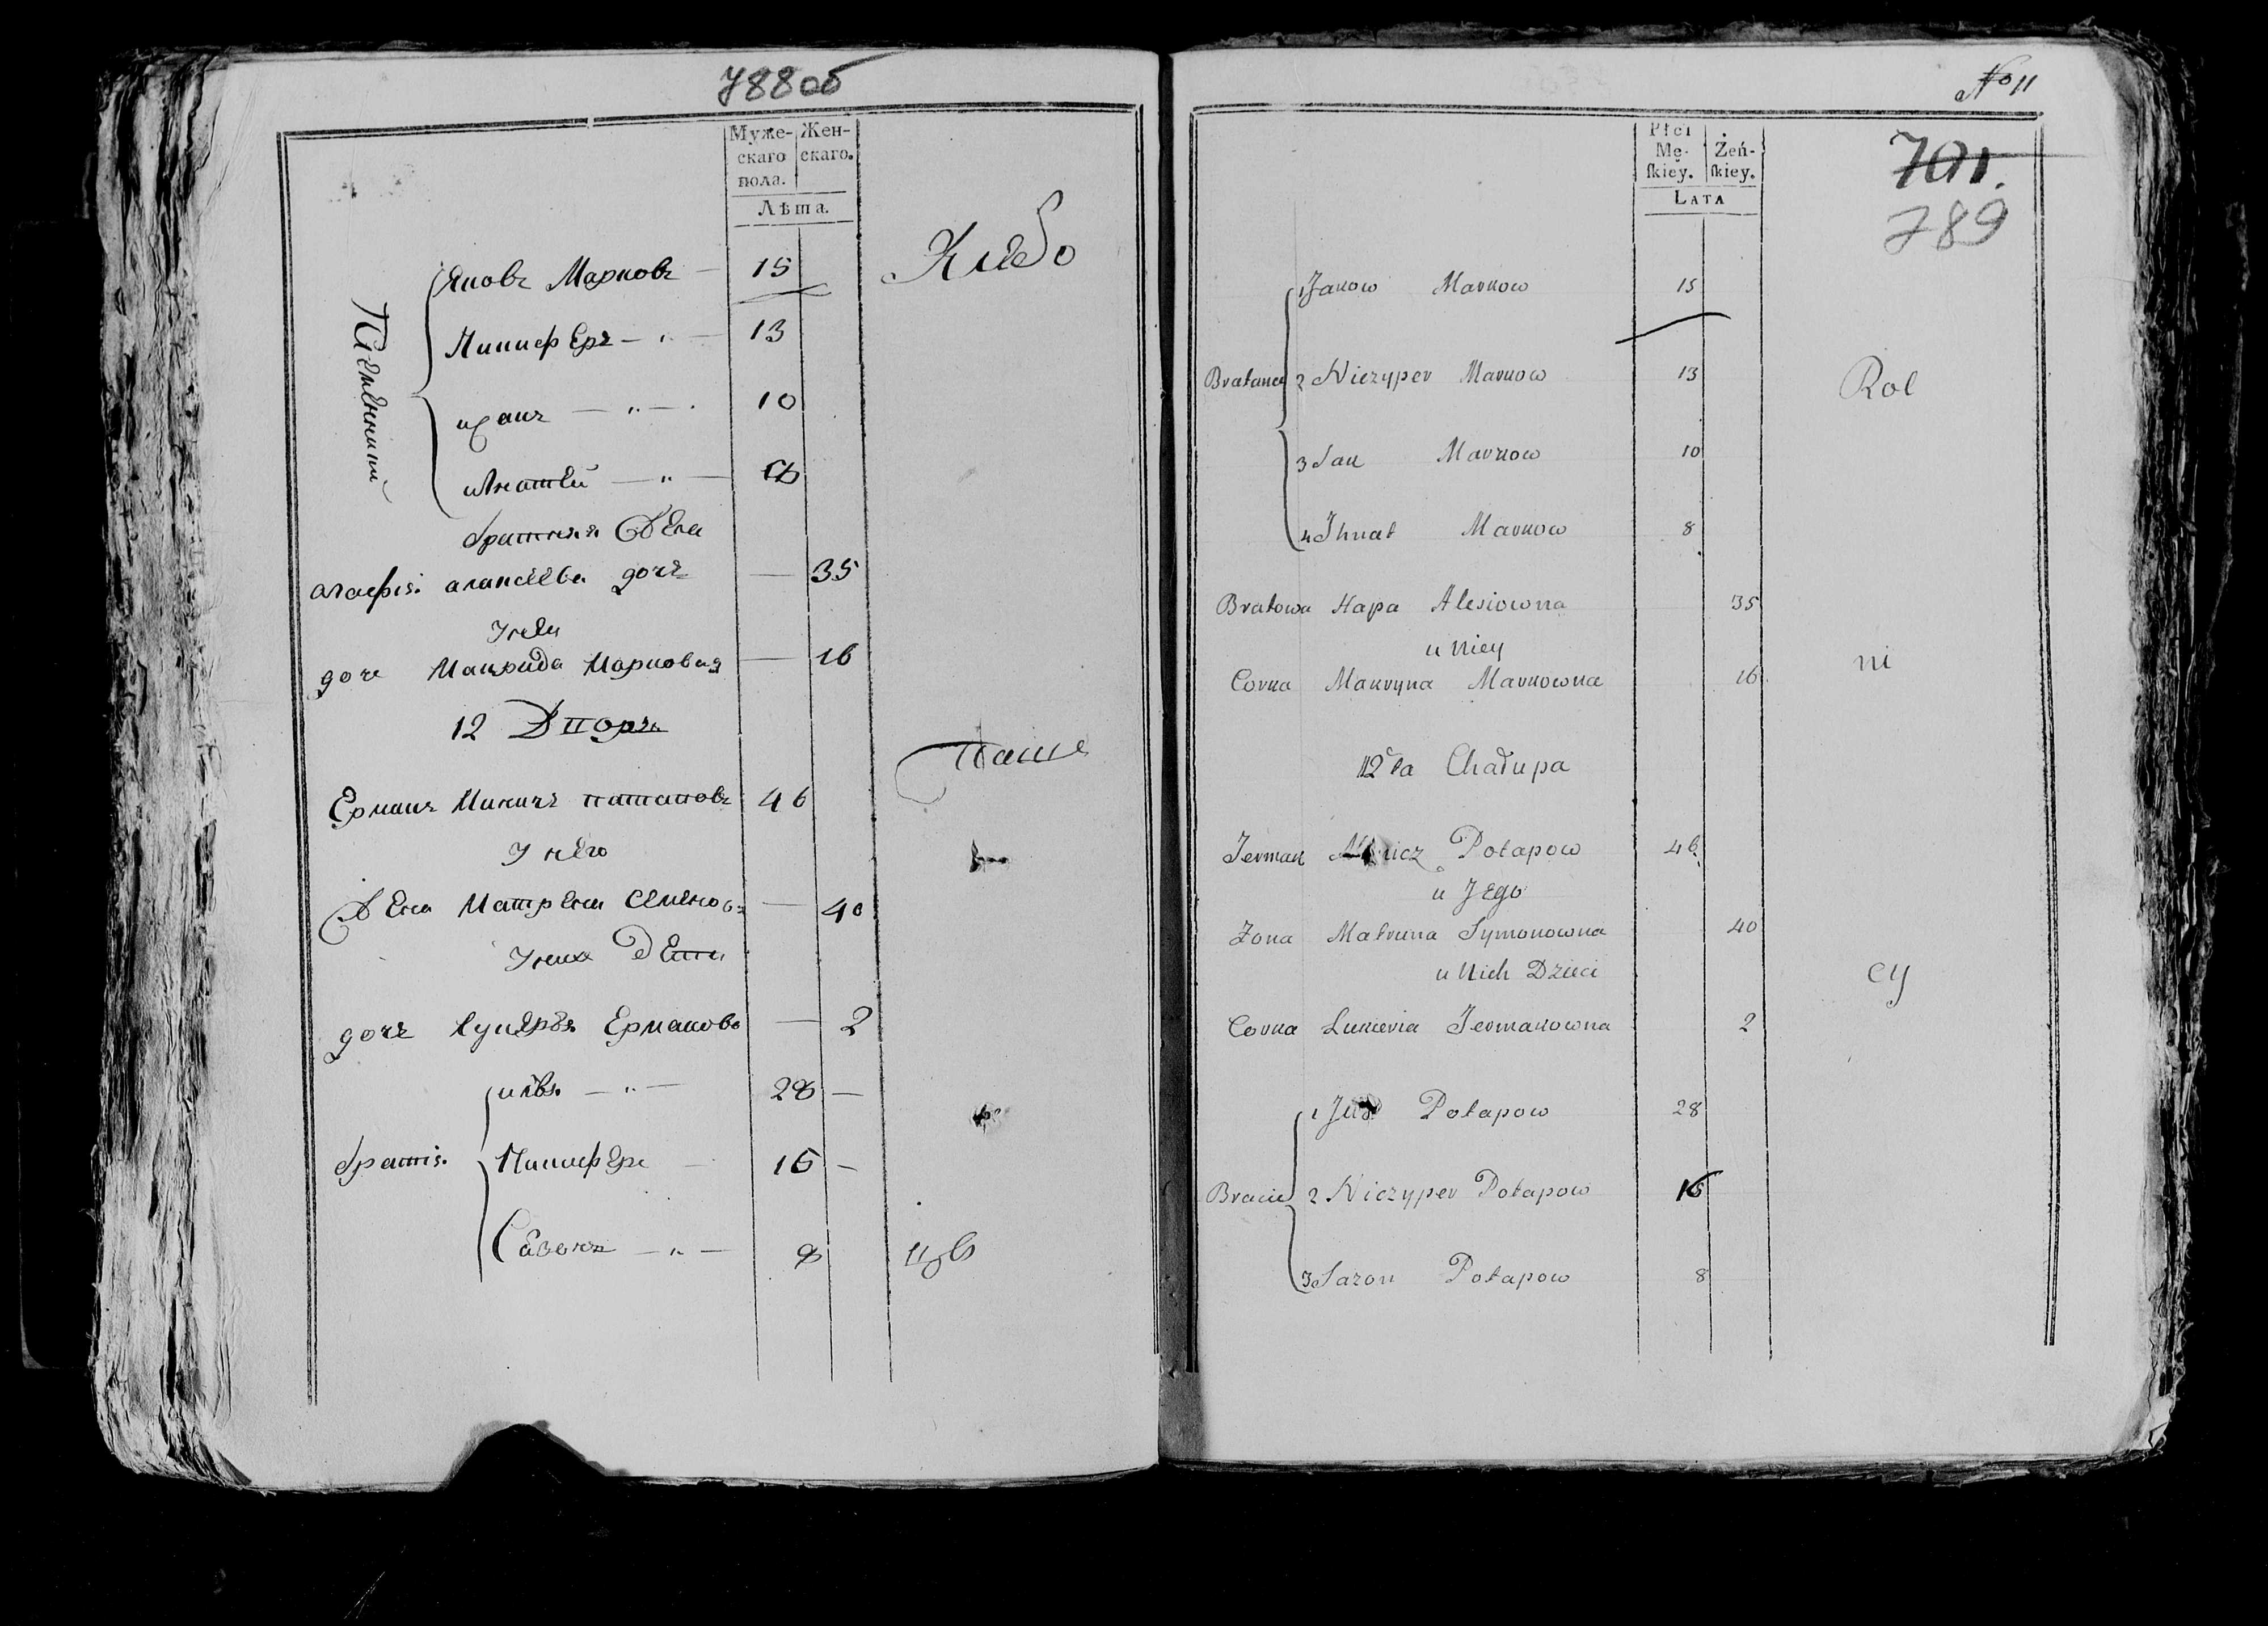 788 об
Муже-
скаго
пола.
Жен-
скаго.
Лѣта.
Племянники
Яковъ Марковъ — 15
Никиферъ — „ — 13
иванъ — „ — 10
игнатей — „ — 8
братняя Жена
агафія алексеева дочь — 35
У неи
дочь Макрида Маркова — 16
12 Дворъ
Ермакъ Миничъ патаповъ 46
У него
Жена Матрена семенов — 40
У них Дети
дочь лукерья Ермакова — 2
братія
илья — „ — 28 —
Никиферъ — 15 —
Сазонъ — „ — 8
Хлебо
паше
цы
No 11
701.
789
Płci
Mę-
skiey.
Żeń-
skiey.
LATA
Bratance
1 Jakow Markow 15
2 Niczyper Markow 13
3 Jan Markow 10
4 Ihnat Markow 8
Bratowa Hapa Alesiowna 35
u Niey
Corka Makryna Markowna 16
12ta Chałupa
Jermak Potapow 46
u Jego
Zona Matruna Symonowna 40
u Nich Dzieci
Corka Lukieria Jermakowna 2
Bracie
1 Potapow 28
2 Niczyper Potapow 15
3 Sazon Potapow 8
Rol
ni
cy